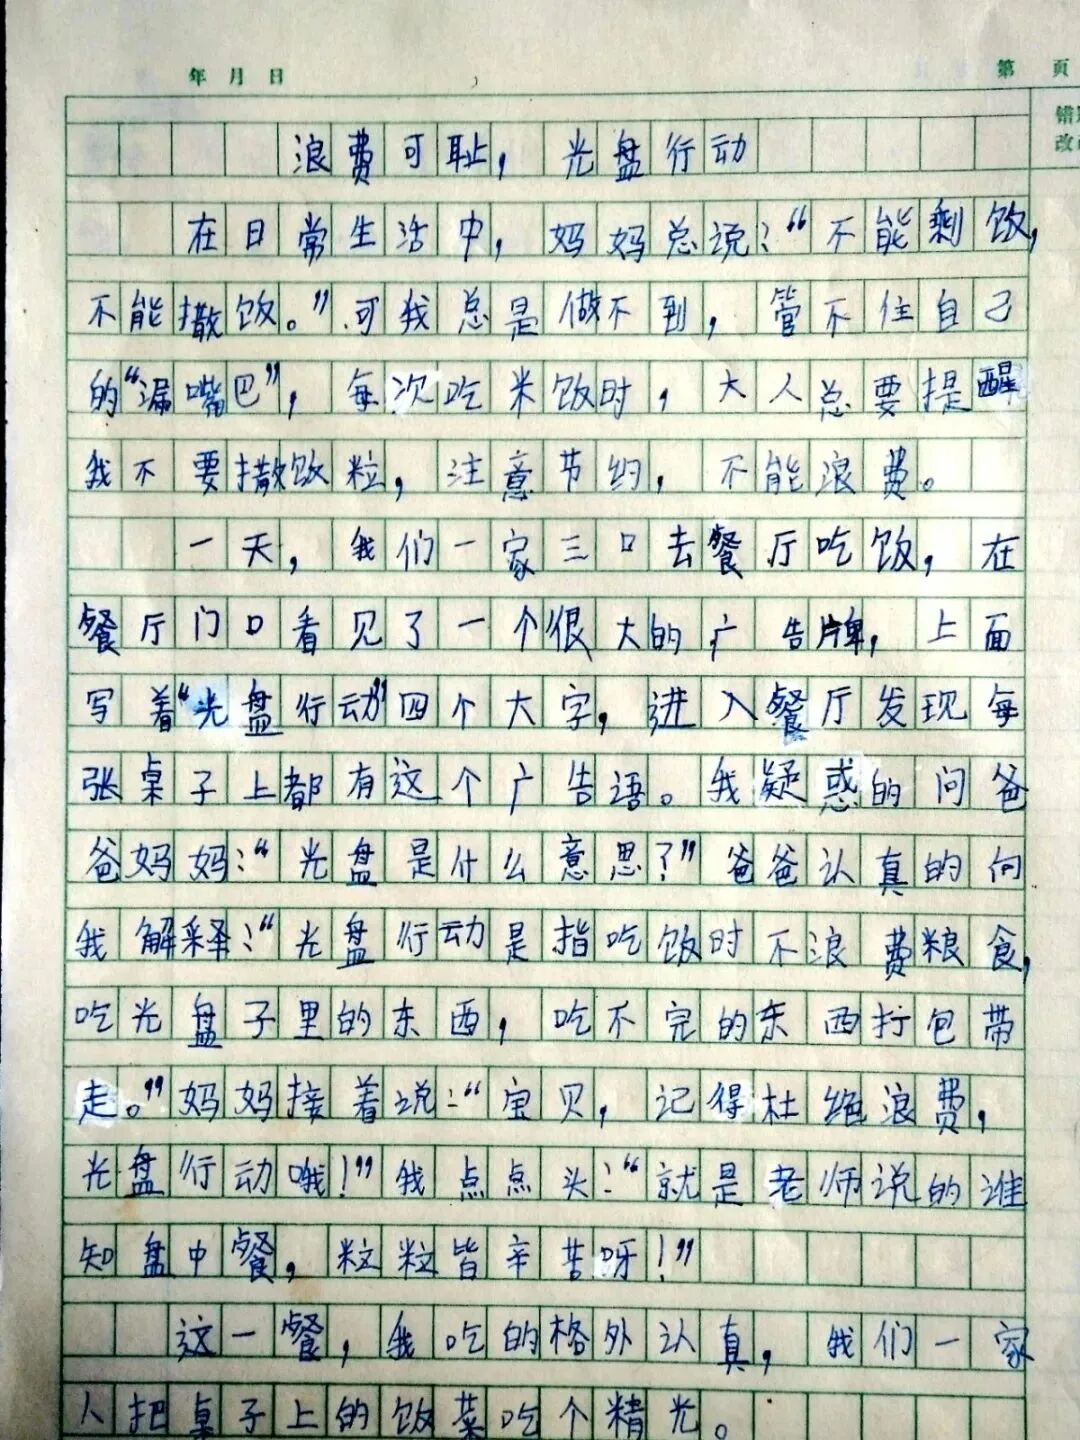 年 月 日
第 页
浪费可耻，光盘行动
在日常生活中，妈妈总说：“不能剩饭，
不能撒饭。”可我总是做不到，管不住自己
的“漏嘴巴”，每次吃米饭时，大人总要提醒
我不要撒饭粒，注意节约，不能浪费。
一天，我们一家三口去餐厅吃饭，在
餐厅门口看见了一个很大的广告牌，上面
写着“光盘行动”四个大字，进入餐厅发现每
张桌子上都有这个广告语。我疑惑的问爸
爸妈妈：“光盘是什么意思？”爸爸认真的向
我解释：“光盘行动是指吃饭时不浪费粮食，
吃光盘子里的东西，吃不完的东西打包带
走。”妈妈接着说：“宝贝，记得杜绝浪费，
光盘行动哦！”我点点头：“就是老师说的谁
知盘中餐，粒粒皆辛苦呀！”
这一餐，我吃的格外认真，我们一家
人把桌子上的饭菜吃个精光。